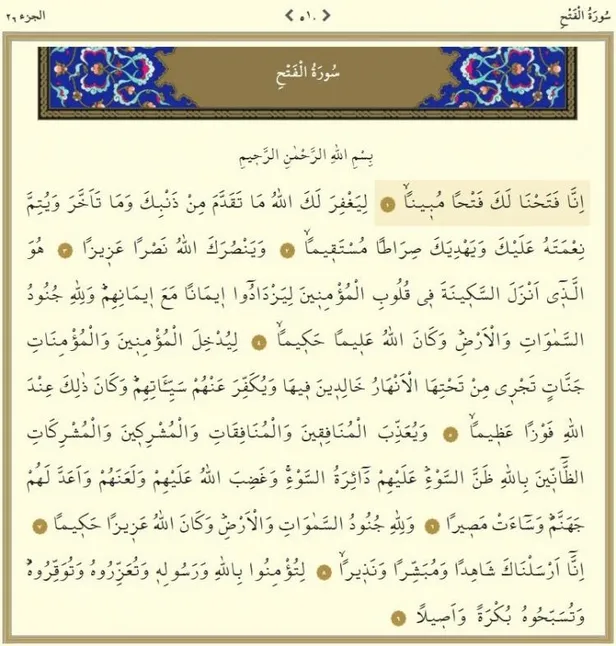 سُورَةُ الْفَتْحِ ❮ ٥١٠ ❯ الجزء ٢٦
سُورَةُ الْفَتْحِ
بِسْمِ اللهِ الرَّحْمٰنِ الرَّحِيمِ
اِنَّا فَتَحْنَا لَكَ فَتْحًا مُبٖينًاۙ ١ لِيَغْفِرَ لَكَ اللهُ مَا تَقَدَّمَ مِنْ ذَنْبِكَ وَمَا تَاَخَّرَ وَيُتِمَّ
نِعْمَتَهُ عَلَيْكَ وَيَهْدِيَكَ صِرَاطًا مُسْتَقٖيمًاۙ ٢ وَيَنْصُرَكَ اللهُ نَصْرًا عَزٖيزًا ٣ هُوَ
الَّذٖٓى اَنْزَلَ السَّكٖينَةَ فٖى قُلُوبِ الْمُؤْمِنٖينَ لِيَزْدَادُٓوا اٖيمَانًا مَعَ اٖيمَانِهِمْؕ وَلِلّٰهِ جُنُودُ
السَّمٰوَاتِ وَالْاَرْضِؕ وَكَانَ اللهُ عَلٖيمًا حَكٖيمًاۙ ٤ لِيُدْخِلَ الْمُؤْمِنٖينَ وَالْمُؤْمِنَاتِ
جَنَّاتٍ تَجْرٖى مِنْ تَحْتِهَا الْاَنْهَارُ خَالِدٖينَ فٖيهَا وَيُكَفِّرَ عَنْهُمْ سَيِّـَٔاتِهِمْؕ وَكَانَ ذٰلِكَ عِنْدَ
اللهِ فَوْزًا عَظٖيمًاۙ ٥ وَيُعَذِّبَ الْمُنَافِقٖينَ وَالْمُنَافِقَاتِ وَالْمُشْرِكٖينَ وَالْمُشْرِكَاتِ
الظَّٓانّٖينَ بِاللهِ ظَنَّ السَّوْءِؕ عَلَيْهِمْ دَٓائِرَةُ السَّوْءِۚ وَغَضِبَ اللهُ عَلَيْهِمْ وَلَعَنَهُمْ وَاَعَدَّ لَهُمْ
جَهَنَّمَؕ وَسَٓاءَتْ مَصٖيرًا ٦ وَلِلّٰهِ جُنُودُ السَّمٰوَاتِ وَالْاَرْضِؕ وَكَانَ اللهُ عَزٖيزًا حَكٖيمًا ٧
اِنَّٓا اَرْسَلْنَاكَ شَاهِدًا وَمُبَشِّرًا وَنَذٖيرًاۙ ٨ لِتُؤْمِنُوا بِاللهِ وَرَسُولِهٖ وَتُعَزِّرُوهُ وَتُوَقِّرُوهُؕ
وَتُسَبِّحُوهُ بُكْرَةً وَاَصٖيلًا ٩